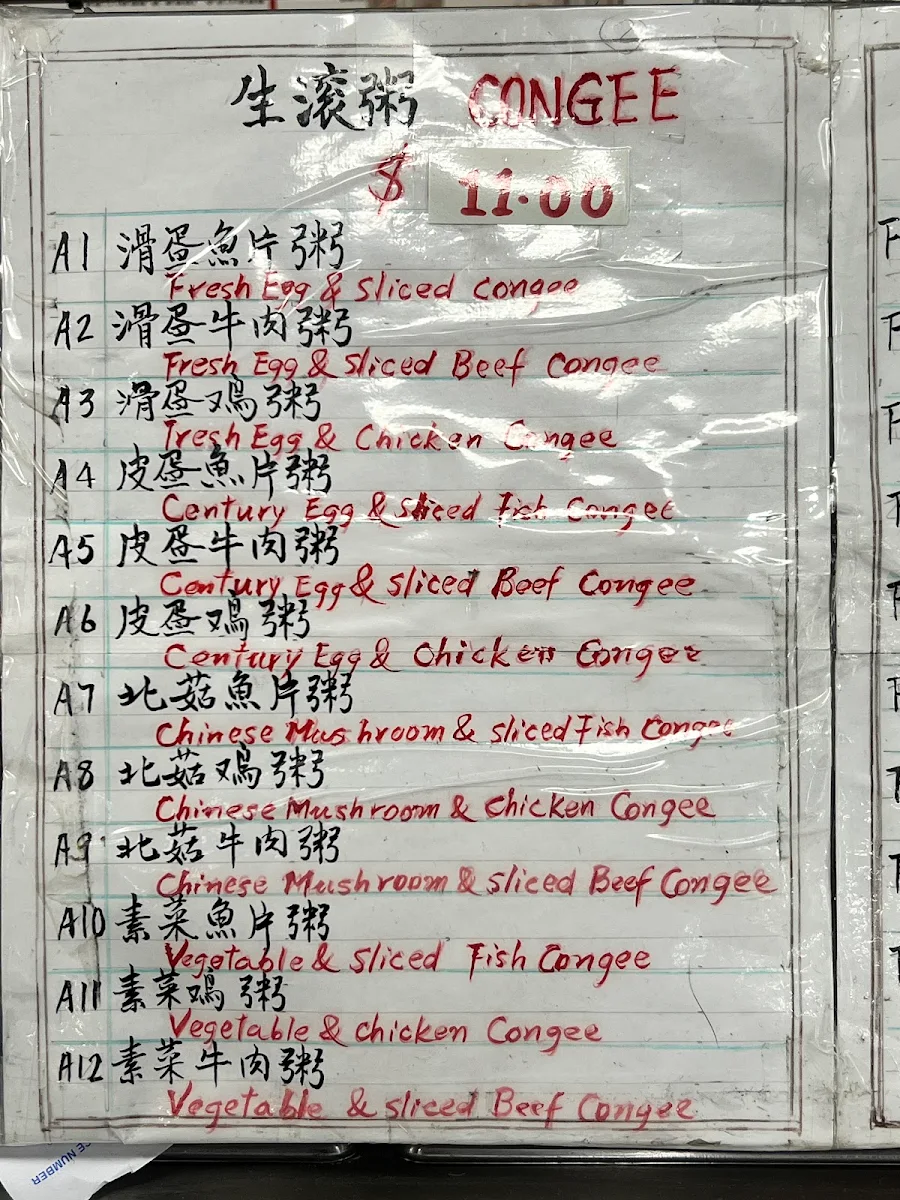 生滚粥 CONGEE
$ 11.00
A1 滑蛋魚片粥
Fresh Egg & Sliced congee
A2 滑蛋牛肉粥
Fresh Egg & Sliced Beef Congee
A3 滑蛋鸡粥
Fresh Egg & Chicken Congee
A4 皮蛋魚片粥
Century Egg & Sliced Fish Congee
A5 皮蛋牛肉粥
Century Egg & Sliced Beef Congee
A6 皮蛋鸡粥
Century Egg & Chicken Congee
A7 北菇魚片粥
Chinese Mushroom & sliced Fish Congee
A8 北菇鸡粥
Chinese Mushroom & Chicken Congee
A9 北菇牛肉粥
Chinese Mushroom & sliced Beef Congee
A10 素菜魚片粥
Vegetable & Sliced Fish Congee
A11 素菜鸡粥
Vegetable & chicken Congee
A12 素菜牛肉粥
Vegetable & sliced Beef Congee
NUMBER